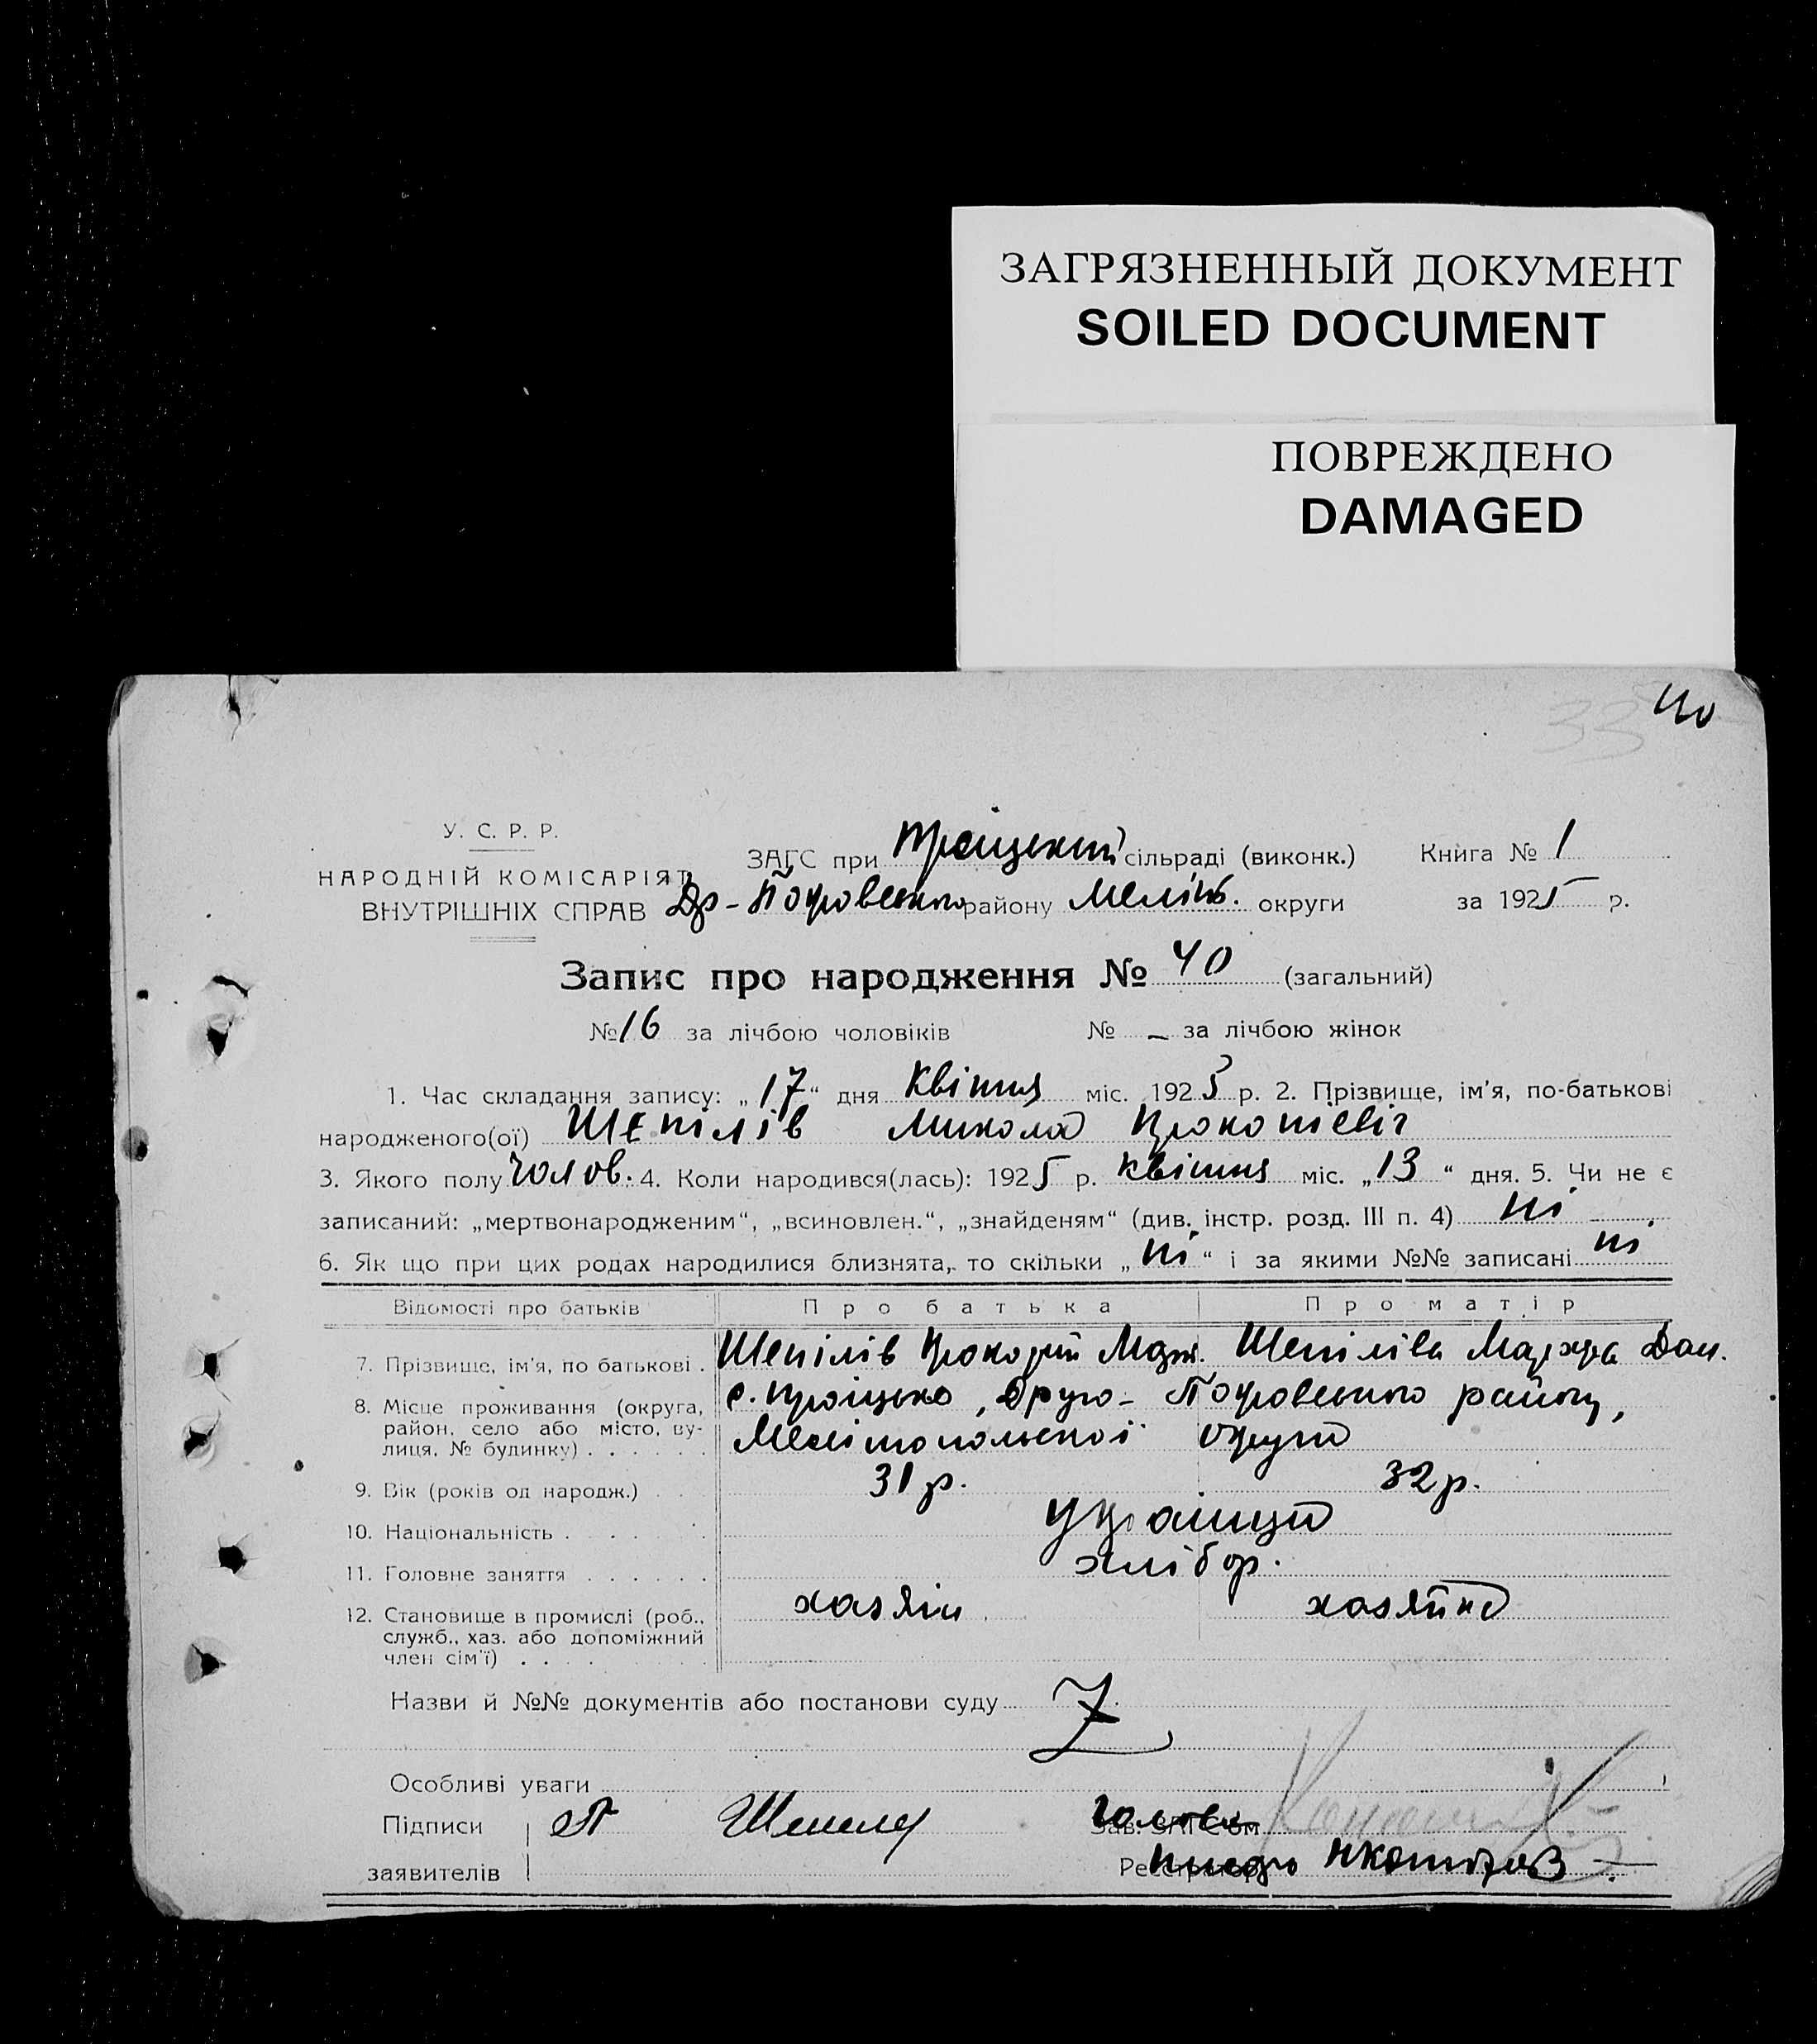 ЗАГРЯЗНЕННЫЙ ДОКУМЕНТ
SOILED DOCUMENT
ПОВРЕЖДЕНО
DAMAGED
33
40
У. С. Р. Р.
НАРОДНІЙ КОМІСАРІЯТ
ВНУТРІШНІХ СПРАВ
ЗАГС при Троіцькій сільраді (виконк.) Книга № 1
Др-Покровського району Меліт. округи за 1925 р.
Запис про народження № 40 (загальний)
№ 16 за лічбою чоловіків № – за лічбою жінок
1. Час складання запису: „17“ дня Квітня міс. 1925 р. 2. Прізвище, ім'я, по-батькові
народженого(ої) Шепілів Микола Прокопієвіч
3. Якого полу чолов. 4. Коли народився(лась): 1925 р. Квітня міс. „13“ дня. 5. Чи не є
записаний: „мертвонародженим“, „всиновлен.“, „знайденям“ (див. інстр. розд. III п. 4) ні
6. Як що при цих родах народилися близнята, то скільки „ні“ і за якими №№ записані ні
Відомості про батьків Про батька Про матір
7. Прізвище, ім'я, по батькові . Шепілів Прокофій Шепіліва Марфа Дан.
8. Місце проживання (округа, с. Троіцько, Друго-Покровського району,
район, село або місто, ву-
лиця, № будинку) . . . . . . Мелітопольскоі округи
9. Вік (років од народж.) . . . 31 р. 32 р.
10. Національність . . . . . Українци
11. Головне заняття . . . . . . хлібор.
12. Становище в промислі (роб., хазяін хазяйка
служб., хаз. або допоміжний
член сім'ї) . . . . . .
Назви й №№ документів або постанови суду Z
Особливі уваги
Підписи Шепілі Зав. ЗАГС'ом
заявителів Реєстратор